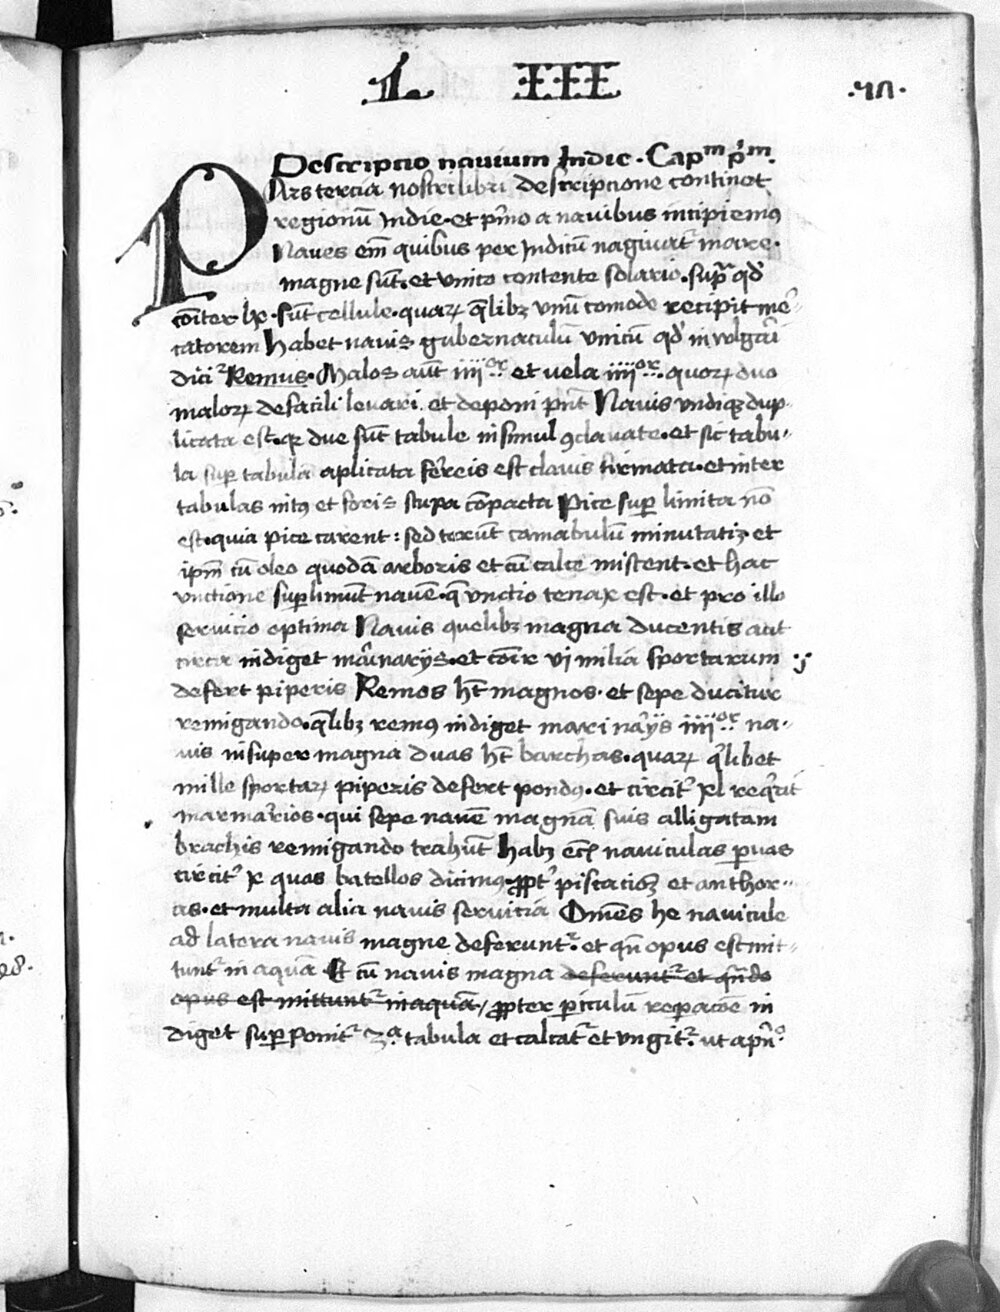 L III
·57·
Descriptio navium Indie · Capm pm.
PArs tercia nostri libri descriptione continet
regionū Indie · et pmo a navibus incipiemꝰ
Naves em̄ quibus per Indicū nagivat̉ mare ·
magne sūt · et unico contente solario · supra qd̓
cōiter he · sūt cellule · quaꝝ q̄libꝫ unū comode recipit me
catorem Habet navis gubernaculū unicū qd̓ in vulgari
dicit̉ Remus · Malos aūt iiiior et vela iiiior · quoꝝ duo
maloꝝ de facili levari · et deponi pn̄t Navis undiqꝫ dup
licata est · qꝛ due sūt tabule insimul ꝯclavate · et sic tabu
la sup̱ tabula aplicata fer̄eis est clavis firmata · et inter
tabulas intꝰ et foris stupa cōpacta Pice sup̱ linita nō
est · quia pice carent : sed terūt canabulū minutatiꝫ et
ipm̄ cū oleo quodā arboris et cū calce miscent · et hac
unctione sup̱linūt navē · q̄ unctio tenax est · et pro illo
servicio optima Navis quelibꝫ magna ducentis aūt
circa indiget marinarijs · et cōit̉ vj milia sportarum
defert piperis Remos hn̄t magnos · et sepe ducitur
remigando · q̄libꝫ remꝰ indiget marinarijs iiiior na
vis insuper magna duas hn̄t barchas · quaꝝ q̄libet
mille sportaꝝ piperis defert pondꝰ · et circit̉ xl requirit
marinarios · qui sepe navē magnā suis alligatam
brachis remigando trahūt Habꝫ naviculas p̱vas
circit̉ x quas batellos dicimꝰ · ꝓpt̉ piscacioꝫ et anchor
as · et multa alia navis servicia Omēs he navicule
ad latera navis magne deferunt̉ · et qn̄ opus est mit
tunt̉ in aquā Et cū navis magna deferunt̉ et qn̄do
opus est mittunt̉ in aquā / ꝓpter p̱iculū rep̱acōe in
diget sup̱ponit̉ 3a tabula et calcat̉ et ungit̉ · ut a pn̊